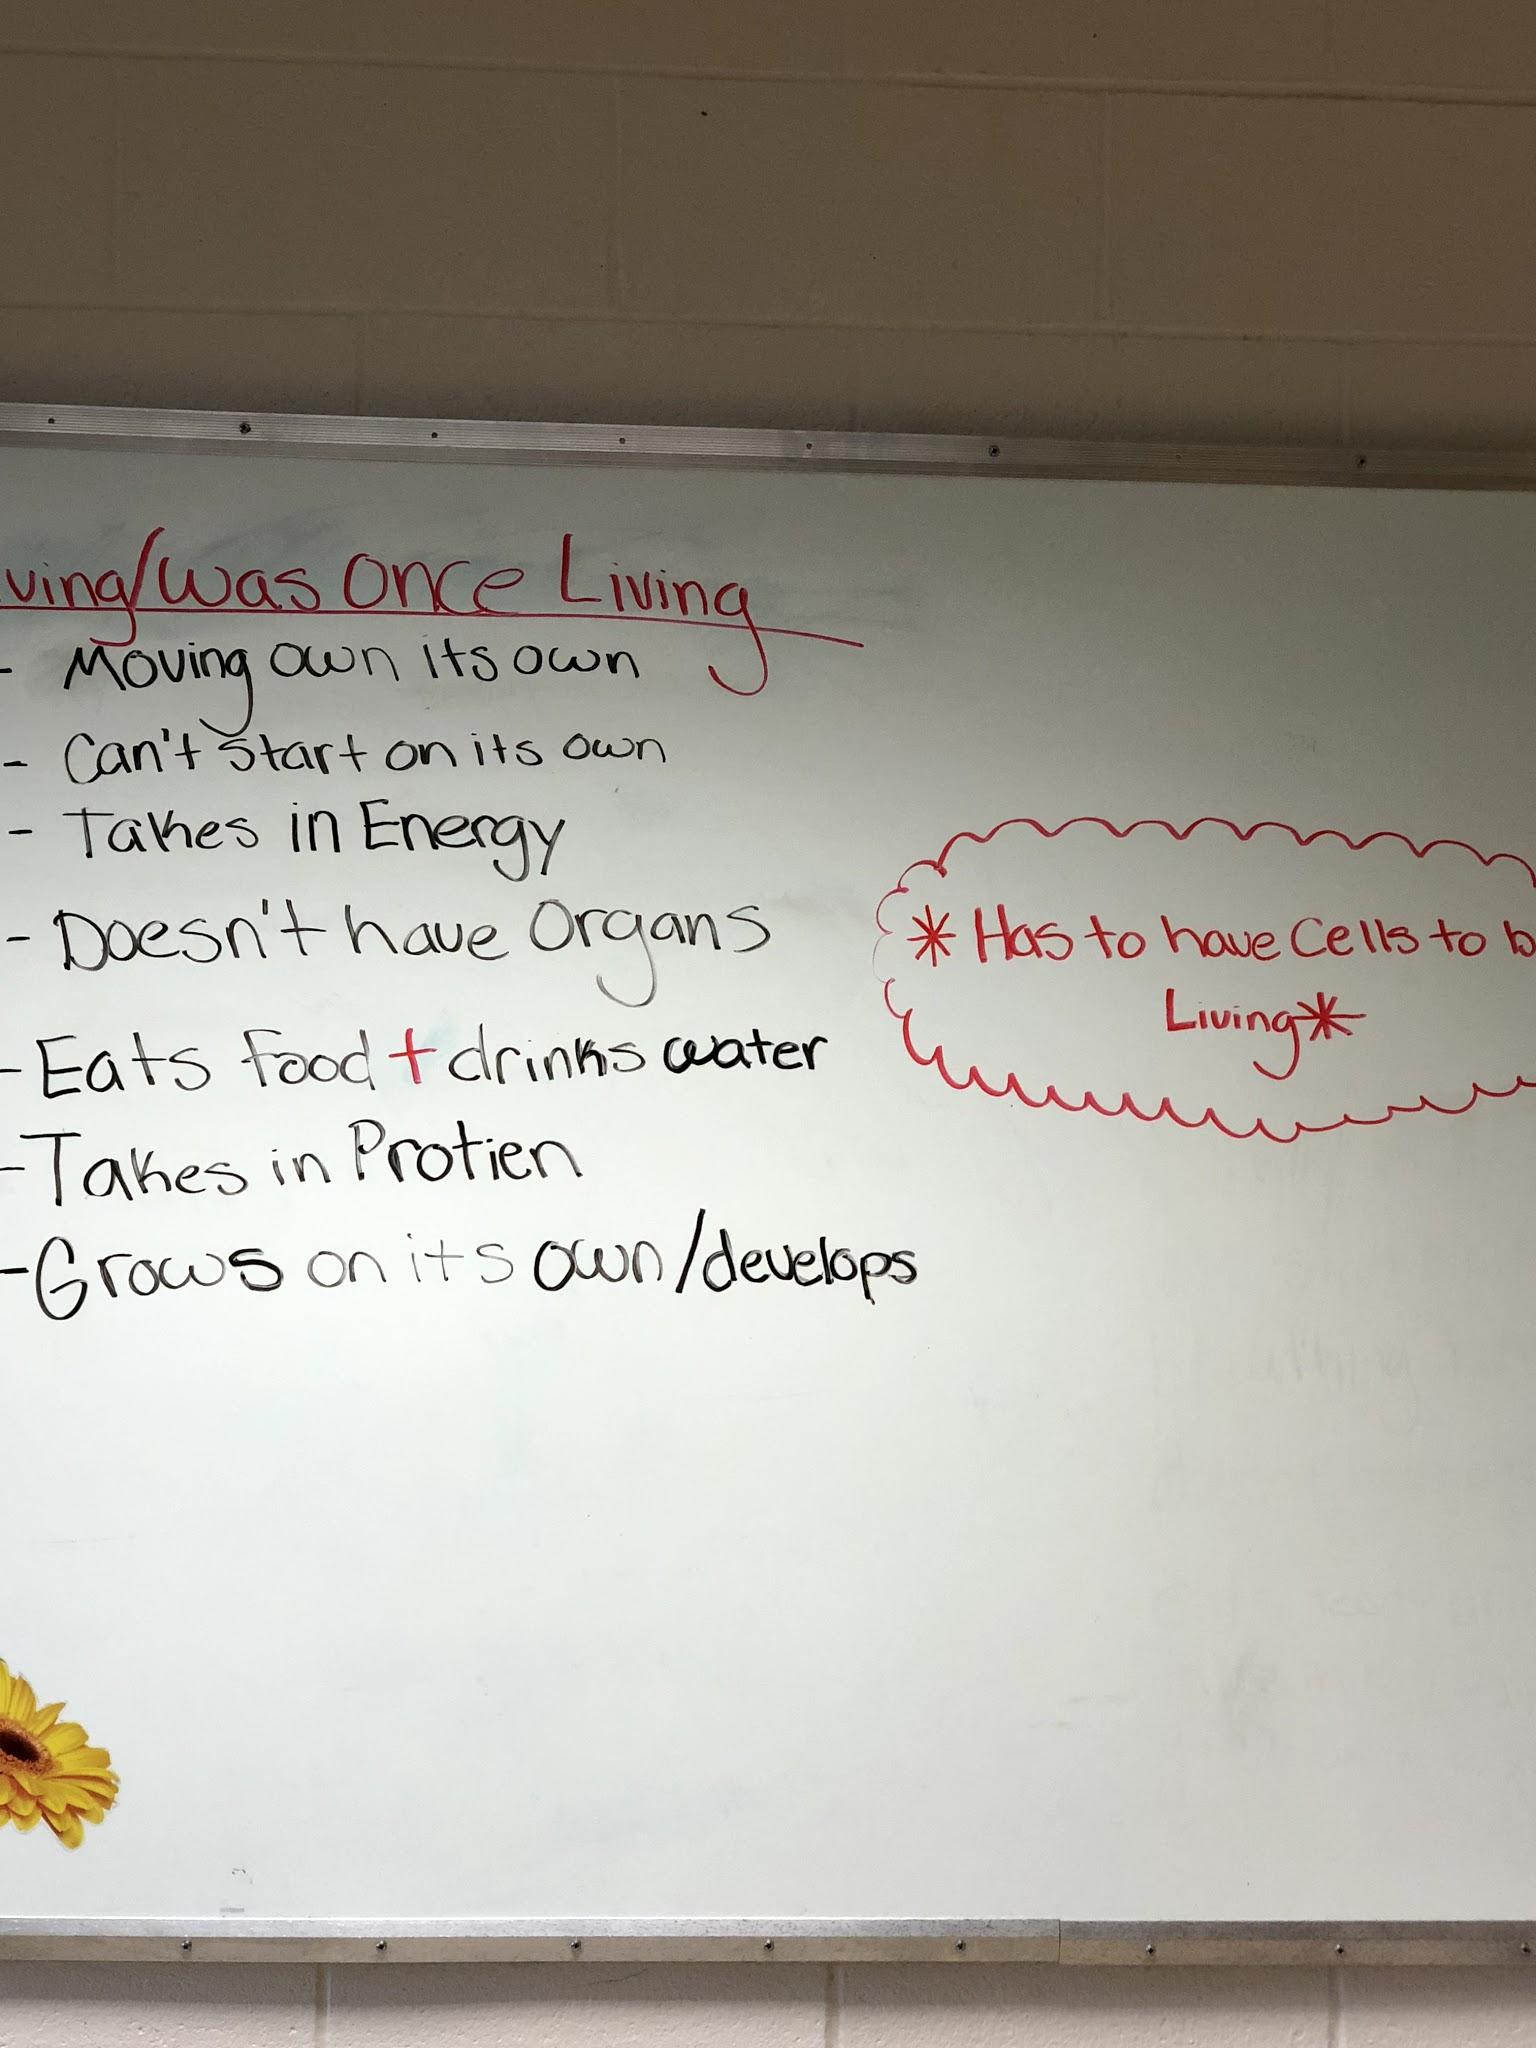 ving/was once Living
- Moving own its own
- Can't start on its own
- Takes in Energy
- Doesn't have Organs
- Eats food + drinks water
- Takes in Protien
- Grows on its own/develops
* Has to have Cells to b
Living *